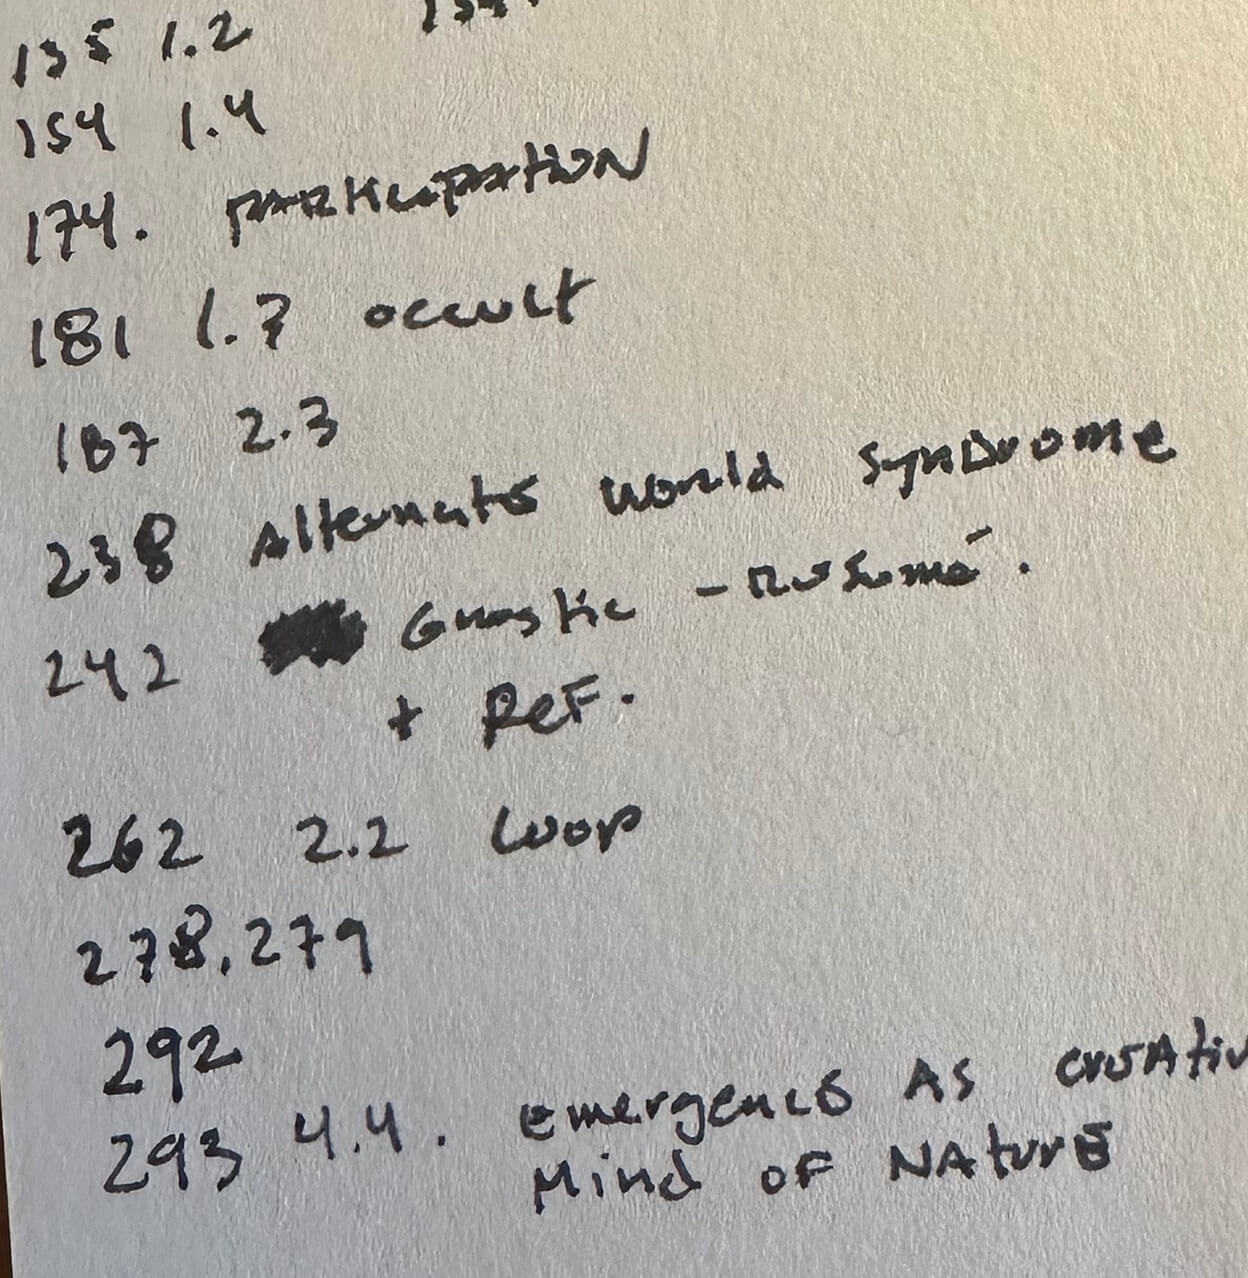 135 1.2
154 1.4
174. PARTICIPATION
181 1.7 occult
187 2.3
238 Alternate World Syndrome
242 Gnostic - Resumé.
+ ReF.
262 2.2 Loop
278, 279
292
293 4.4. Emergence As creativ
Mind of NAture